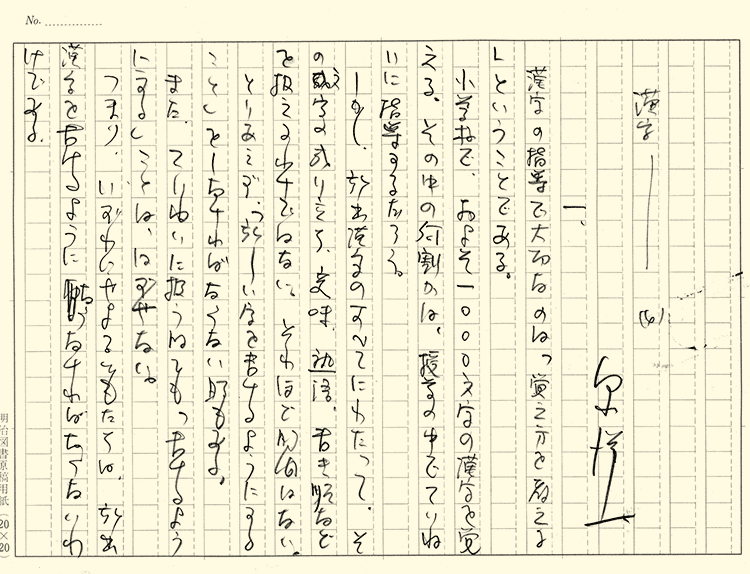 No.
漢字 ― (6)
一、
漢字の指導で大切なのは「覚え方を教える
」ということである。
小学校で、およそ一〇〇〇文字の漢字を覚
える。その中の何割かは、授業の中でていね
いに指導するだろう。
しかし、新出漢字のすべてにわたって、そ
の文字の成り立ち、意味、熟語、書き順など
を扱えるわけではない。それほど時間はない。
とりあえず、「新しい字を書けるようにする
こと」としなければならない時もある。
また、ていねいに扱っても「書けるよう
にする」ことは、はずせない。
つまり、いずれにせよ子どもたちは、新出
漢字を書けるようにならなければならないわ
けである。
明治図書原稿用紙(20×20)